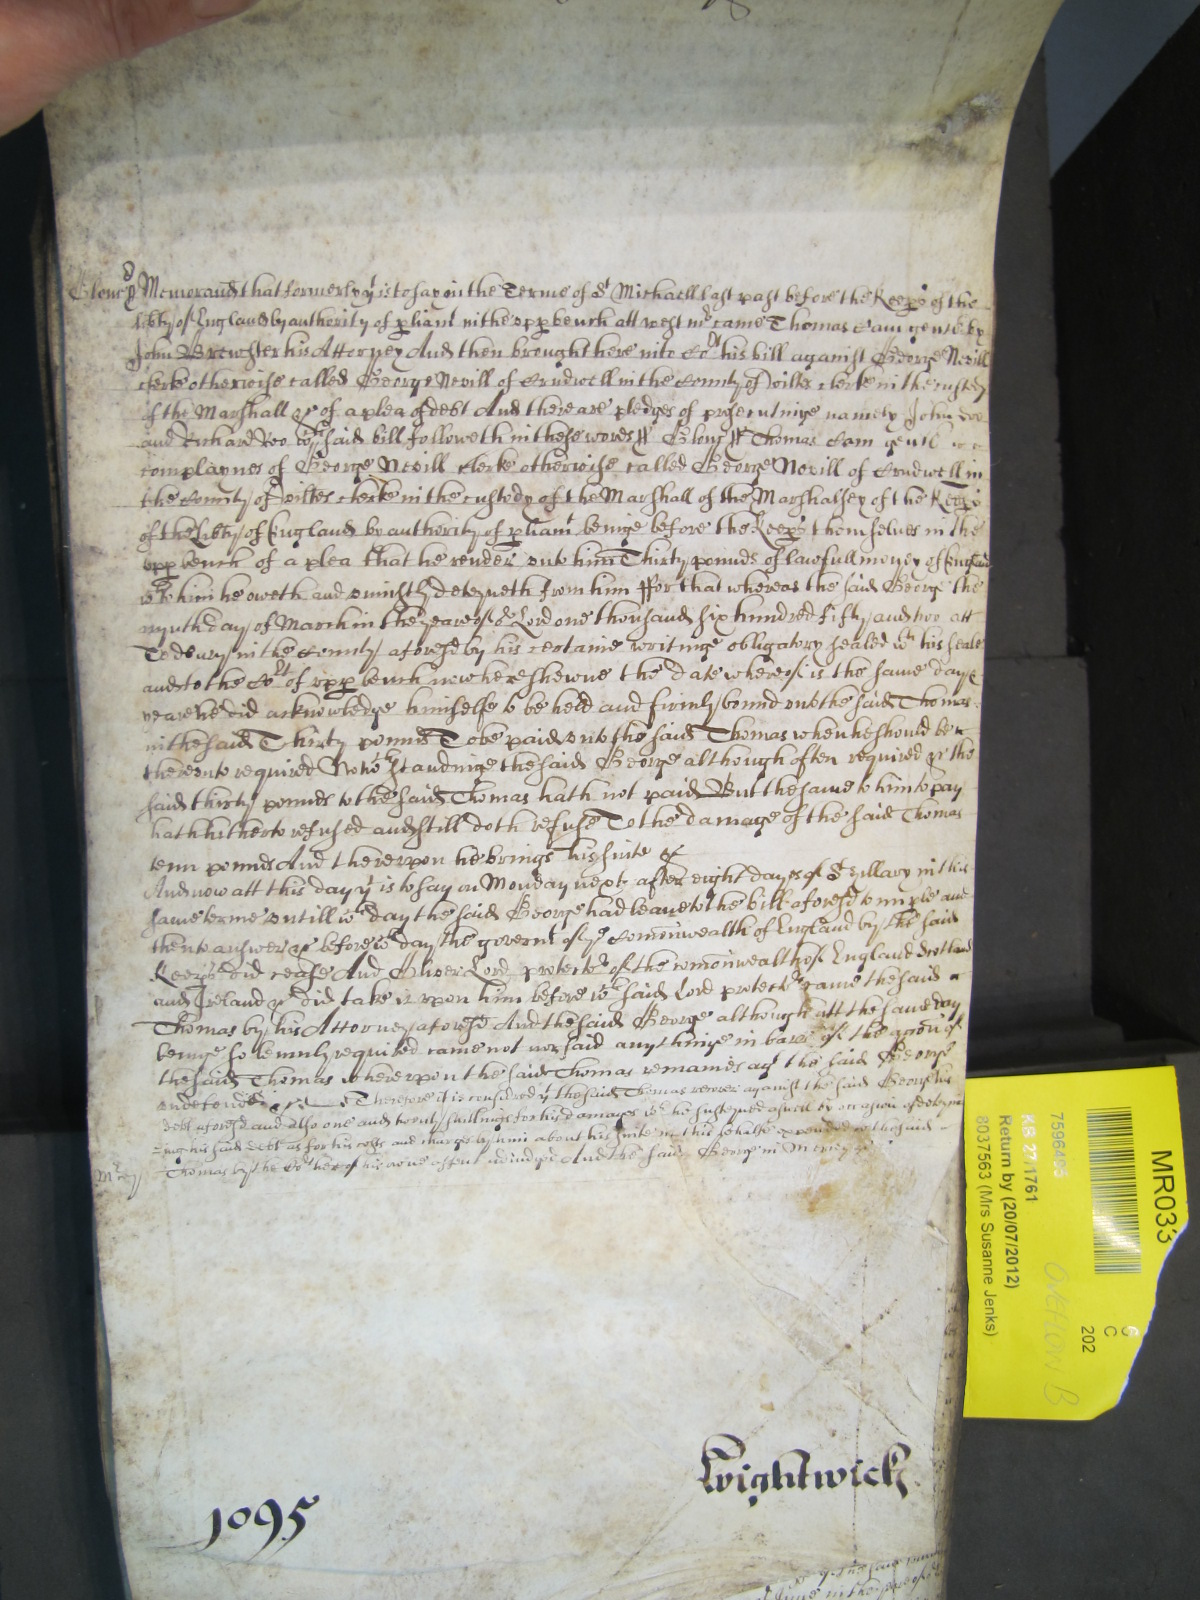 Glouc Memorand that formerly yt is to say in the Terme of St Michaell last past before the Keeps of the
libty of England by authority of pliamt in the upp bench att westmr came Thomas Cam gent by
John Brewster his Attorney And then brought here into Cort his bill against George Nevill
clerke otherwise called George Nevill of Crudwell in the County of Wiltes clerke in the custody
of the Marshall &c of a plea of debt And there are pledges of prosecutinge namely John Doe
and Richard Roe wch said bill followeth in these words ss Glouc ss Thomas Cam gent
complaynes of George Nevill clerke otherwise called George Nevill of Crudwell in
the County of Wiltes clerke in the custody of the Marshall of the Marshalsey of the Keeps
of the Libty of England by authority of pliamt beinge before the Keeps themselves in the
upp bench of a plea that he render unto him Thirty pounds of lawfull money of England
wch to him he oweth and uniustly deteyneth from him ffor that whereas the said George the
nynth day of March in the yeare of or Lord one thousand six hundred fifty and two att
Tedbury in the County aforesd by his certaine writinge obligatory sealed wth his seale
and to the Cort of upp bench now here shewne the date whereof is the same day &
yeare he did acknowledge himselfe to be held and firmly bound unto the said Thomas
in the said Thirty pounds To be paid unto the said Thomas when he should be
thereunto required Notwthstandinge the said George although often required &c the
said thirty pounds to the said Thomas hath not paid But the same to him to pay
hath hitherto refused and still doth refuse To the damage of the said Thomas
tenn pounds And thereupon he brings his suite &c
And now att this day yt is to say on Monday next after eight dayes of St Hillary in this
same terme untill wch day the said George had leave to the bill aforesd to imple and
then to answer &c before wch day the governt of ye Comonwealth of England by the said
Keeps did cease And Oliver Lord protector of the comonwealth of England Scotland
and Ireland &c did take it upon him before wch said Lord protector came the said
Thomas by his Attorney aforesd And the said George although att the same day
beinge solemnly required came not nor said any thinge in barr of the accon of
the said Thomas whereupon the said Thomas remaines agt the said George
undefended &c Therefore it is considered yt the said Thomas recover against the said George his
debt aforesd and also one and twenty shillings for his damages wch he susteyned aswell by occasion of deteyn
inge his said debt as for his costs and charges by him about his suite in this behalfe expended to the said
Thomas by the Cort here of his owne assent adiudged And the said George in Mercy &c
Mrcy
1095
Wightwick
MR033
6
C
202
7596495
KB 27/1761
Return by (20/07/2012)
8037563 (Mrs Susanne Jenks)
OVERFLOW B